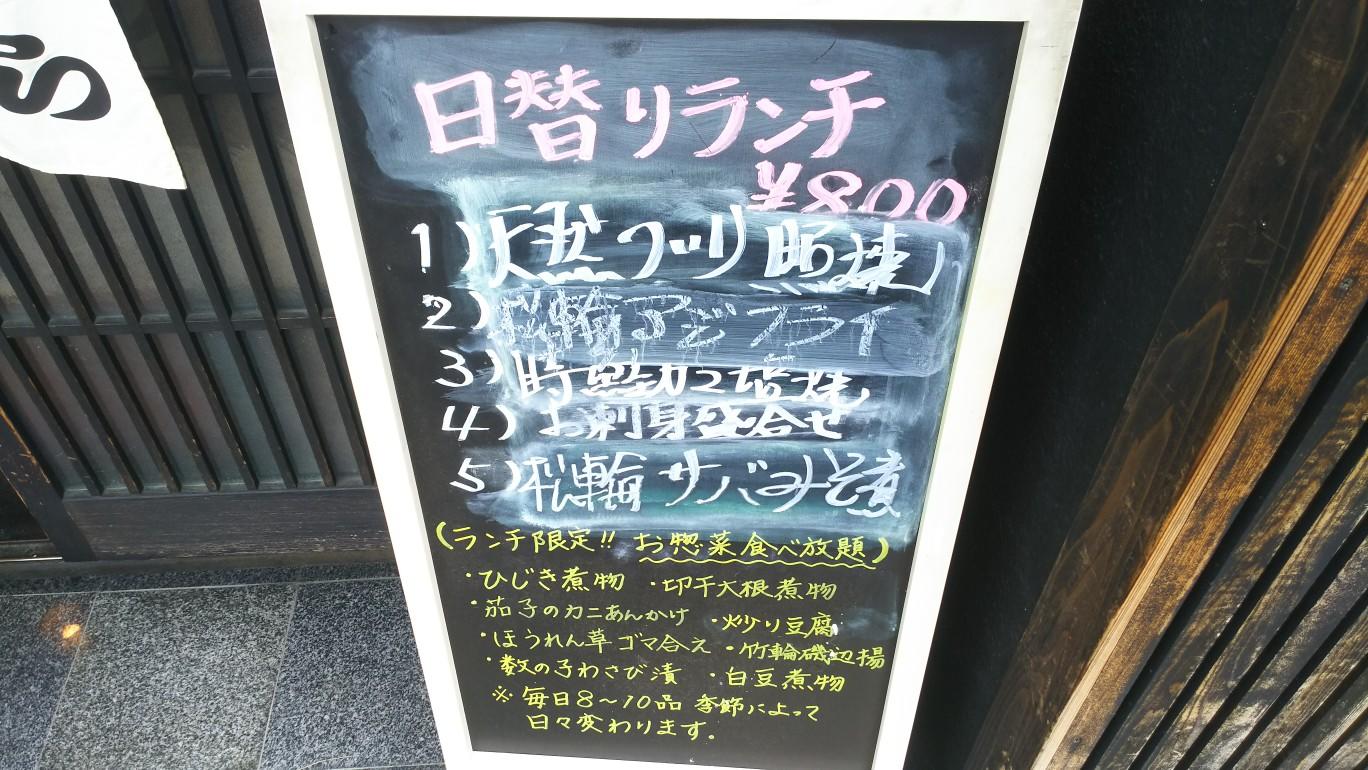 日替りランチ
¥800
1)天然ブリ照焼
2)松輪アジフライ
3)時鮭カマ塩焼
4)お刺身盛合せ
5)松輪サバみそ煮
(ランチ限定!! お惣菜食べ放題)
・ひじき煮物 ・切干大根煮物
・茄子のカニあんかけ ・炒り豆腐
・ほうれん草ゴマ合え ・竹輪磯辺揚
・数の子わさび漬 ・白豆煮物
※毎日8〜10品 季節によって
日々変わります。